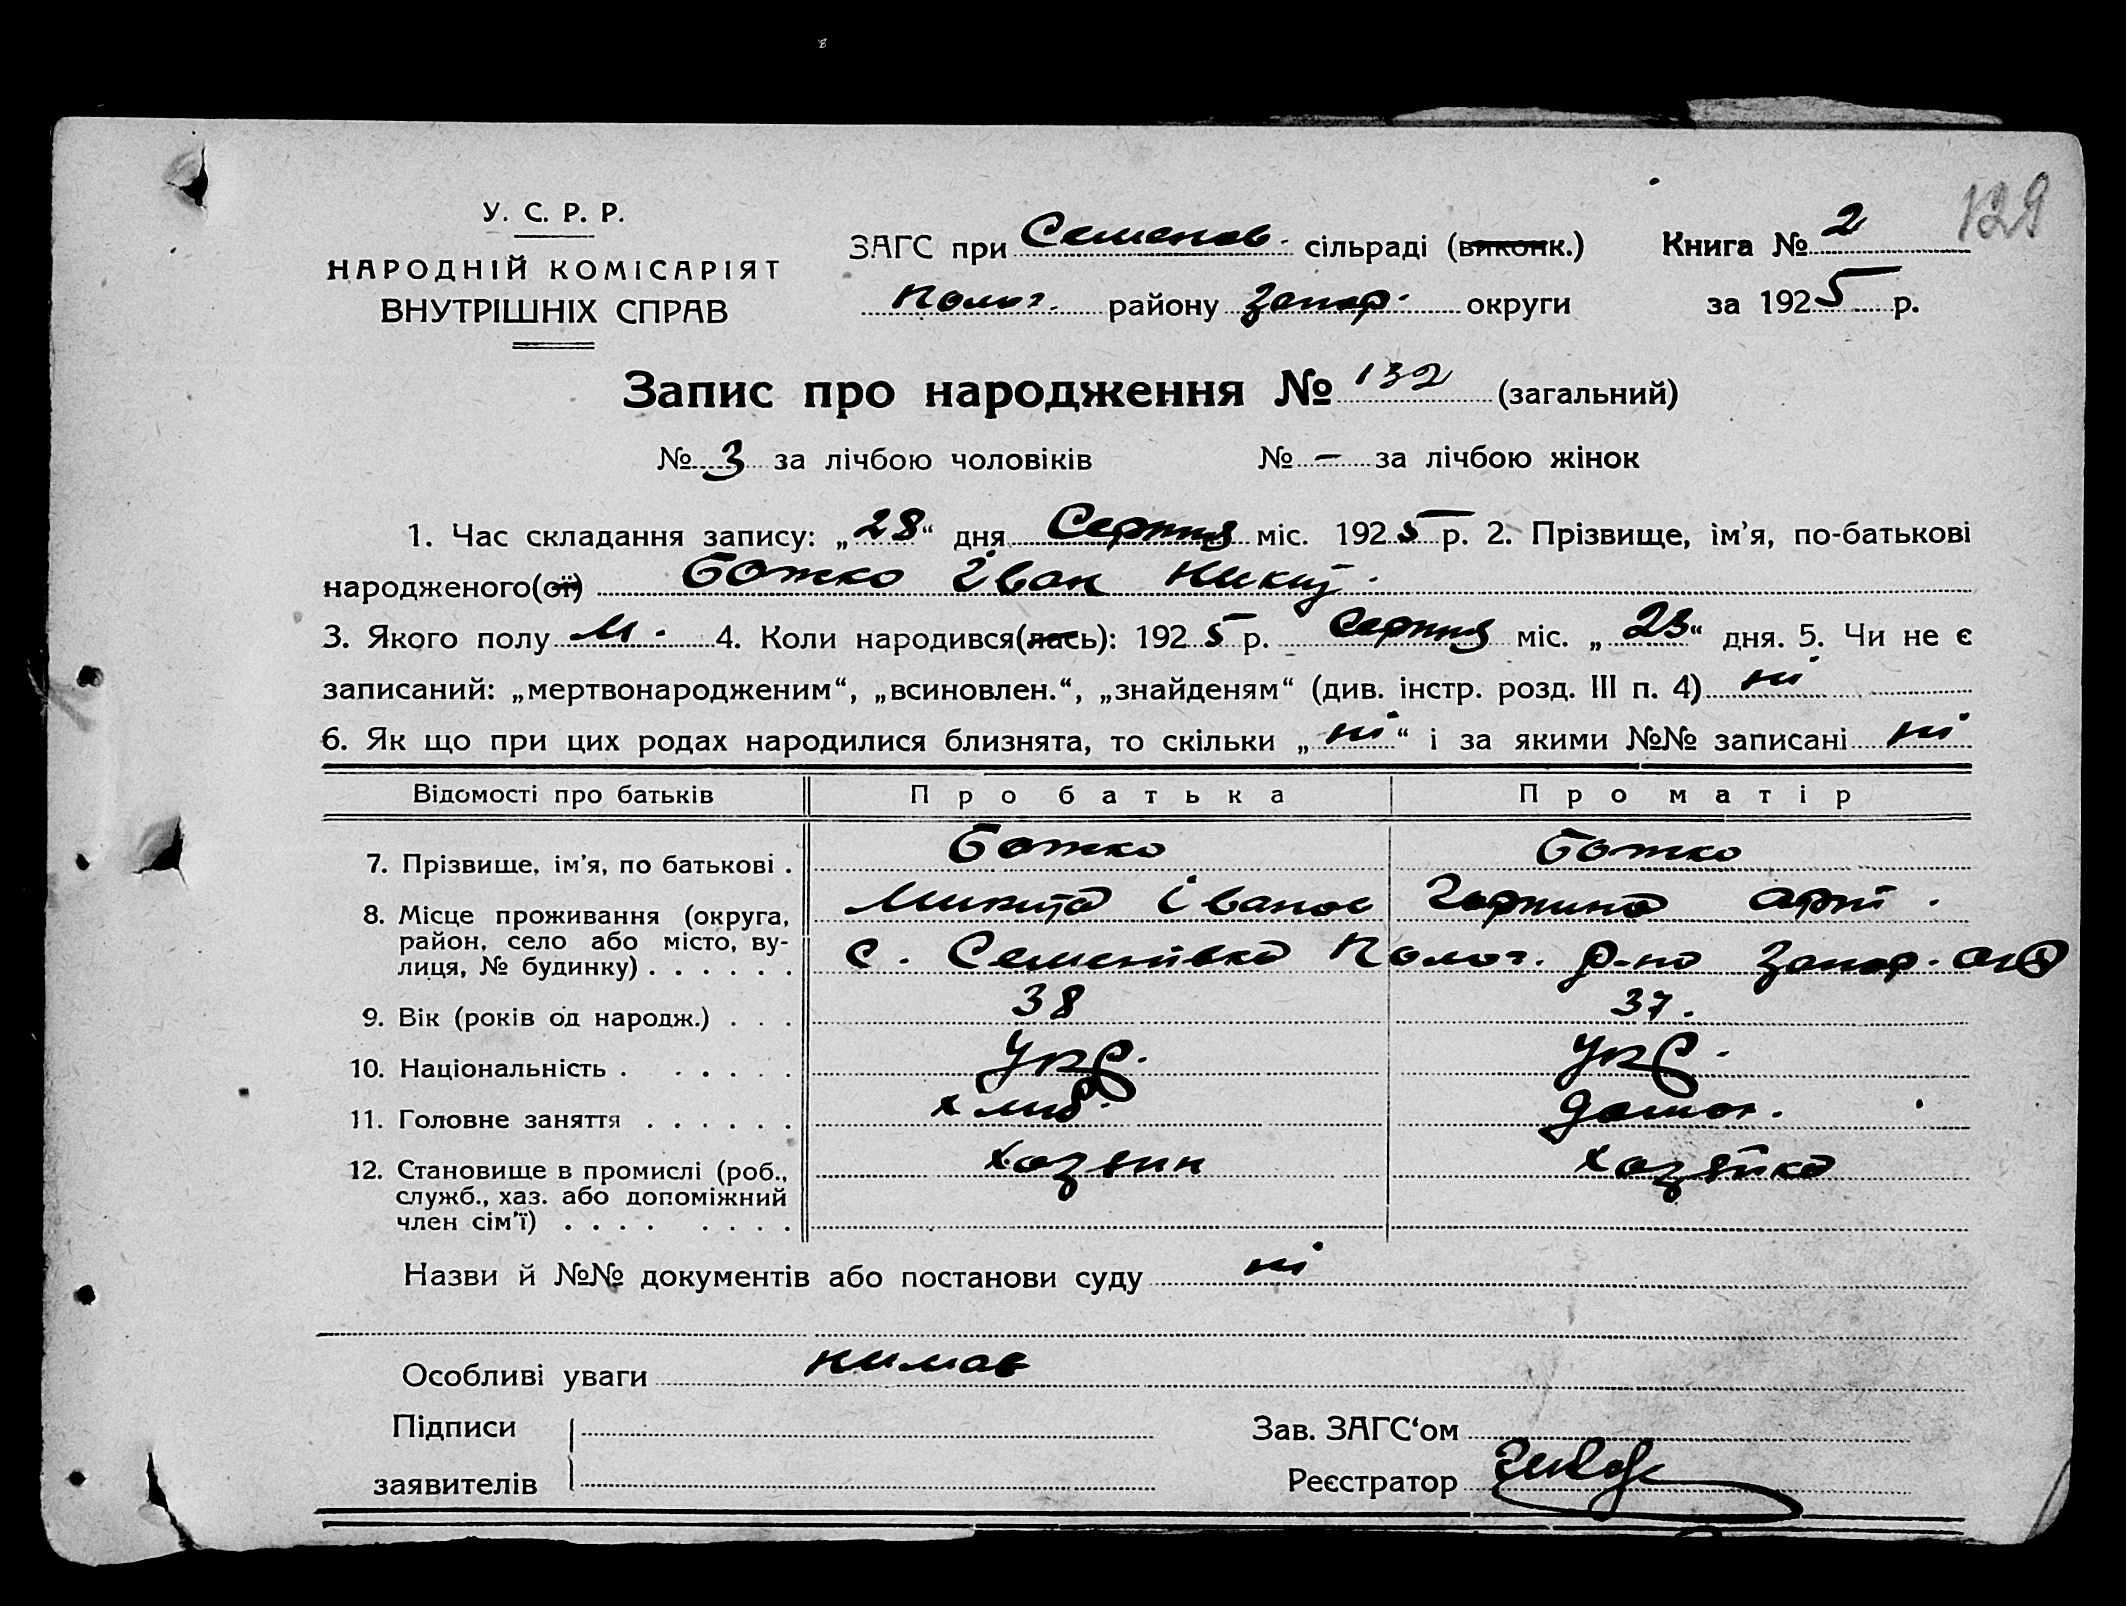 129
У. С. Р. Р.
НАРОДНІЙ КОМІСАРІЯТ
ВНУТРІШНІХ СПРАВ
ЗАГС при Семенов. сільраді (виконк.) Книга № 2
Полог. району Запор. округи за 1925 р.
Запис про народження № 132 (загальний)
№ 3 за лічбою чоловіків № – за лічбою жінок
1. Час складання запису: „28“ дня Серпня міс. 1925 р. 2. Прізвище, ім’я, по-батькові
народженого(ої) Божко Іван Микит.
3. Якого полу М. 4. Коли народився(лась): 1925 р. Серпня міс. „23“ дня. 5. Чи не є
записаний: „мертвонародженим“, „всиновлен.“, „знайденям“ (див. інстр. розд. III п. 4) ні
6. Як що при цих родах народилися близнята, то скільки „ні“ і за якими №№ записані ні
Відомості про батьків Про батька Про матір
7. Прізвище, ім’я, по батькові . Божко Божко
Микита Іванов Арт.
8. Місце проживання (округа,
район, село або місто, ву-
лиця, № будинку) . . . . . . с. Семенівка Полог. р-на Запор. окр
9. Вік (років од народж.) . . . 38 37.
10. Національність . . . . . . Укр. Укр.
11. Головне заняття . . . . . . хліб. домог.
12. Становище в промислі (роб., хазяин хазяйка
служб., хаз. або допоміжний
член сім’ї) . . . . . . . .
Назви й №№ документів або постанови суду ні
Особливі уваги нимав
Підписи Зав. ЗАГС‘ом
заявителів Реєстратор